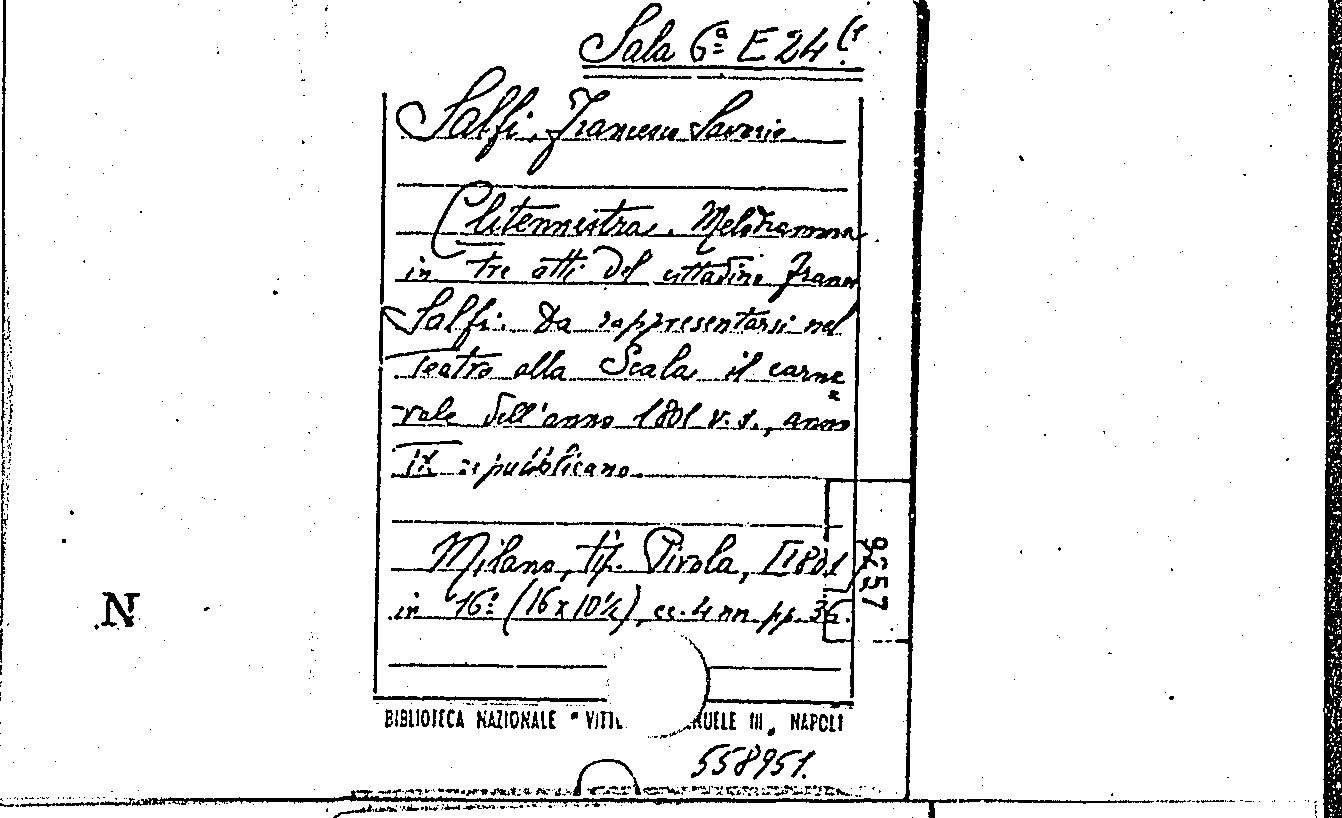 Sala 6ª E 24
Salfi, Francesco Saverio
Clitennestra. Melodramma
in tre atti del cittadino Franco
Salfi. Da rappresentarsi nel
Teatro alla Scala il carne
vale dell'anno 1801 v. s., anno
IX repubblicano
Milano, tip. Pirola, [1801
in 16º (16 x 10½), cc. 4 nn. pp. 36.
9257
N
BIBLIOTECA NAZIONALE "VITT NUELE III„ NAPOLI
558951.